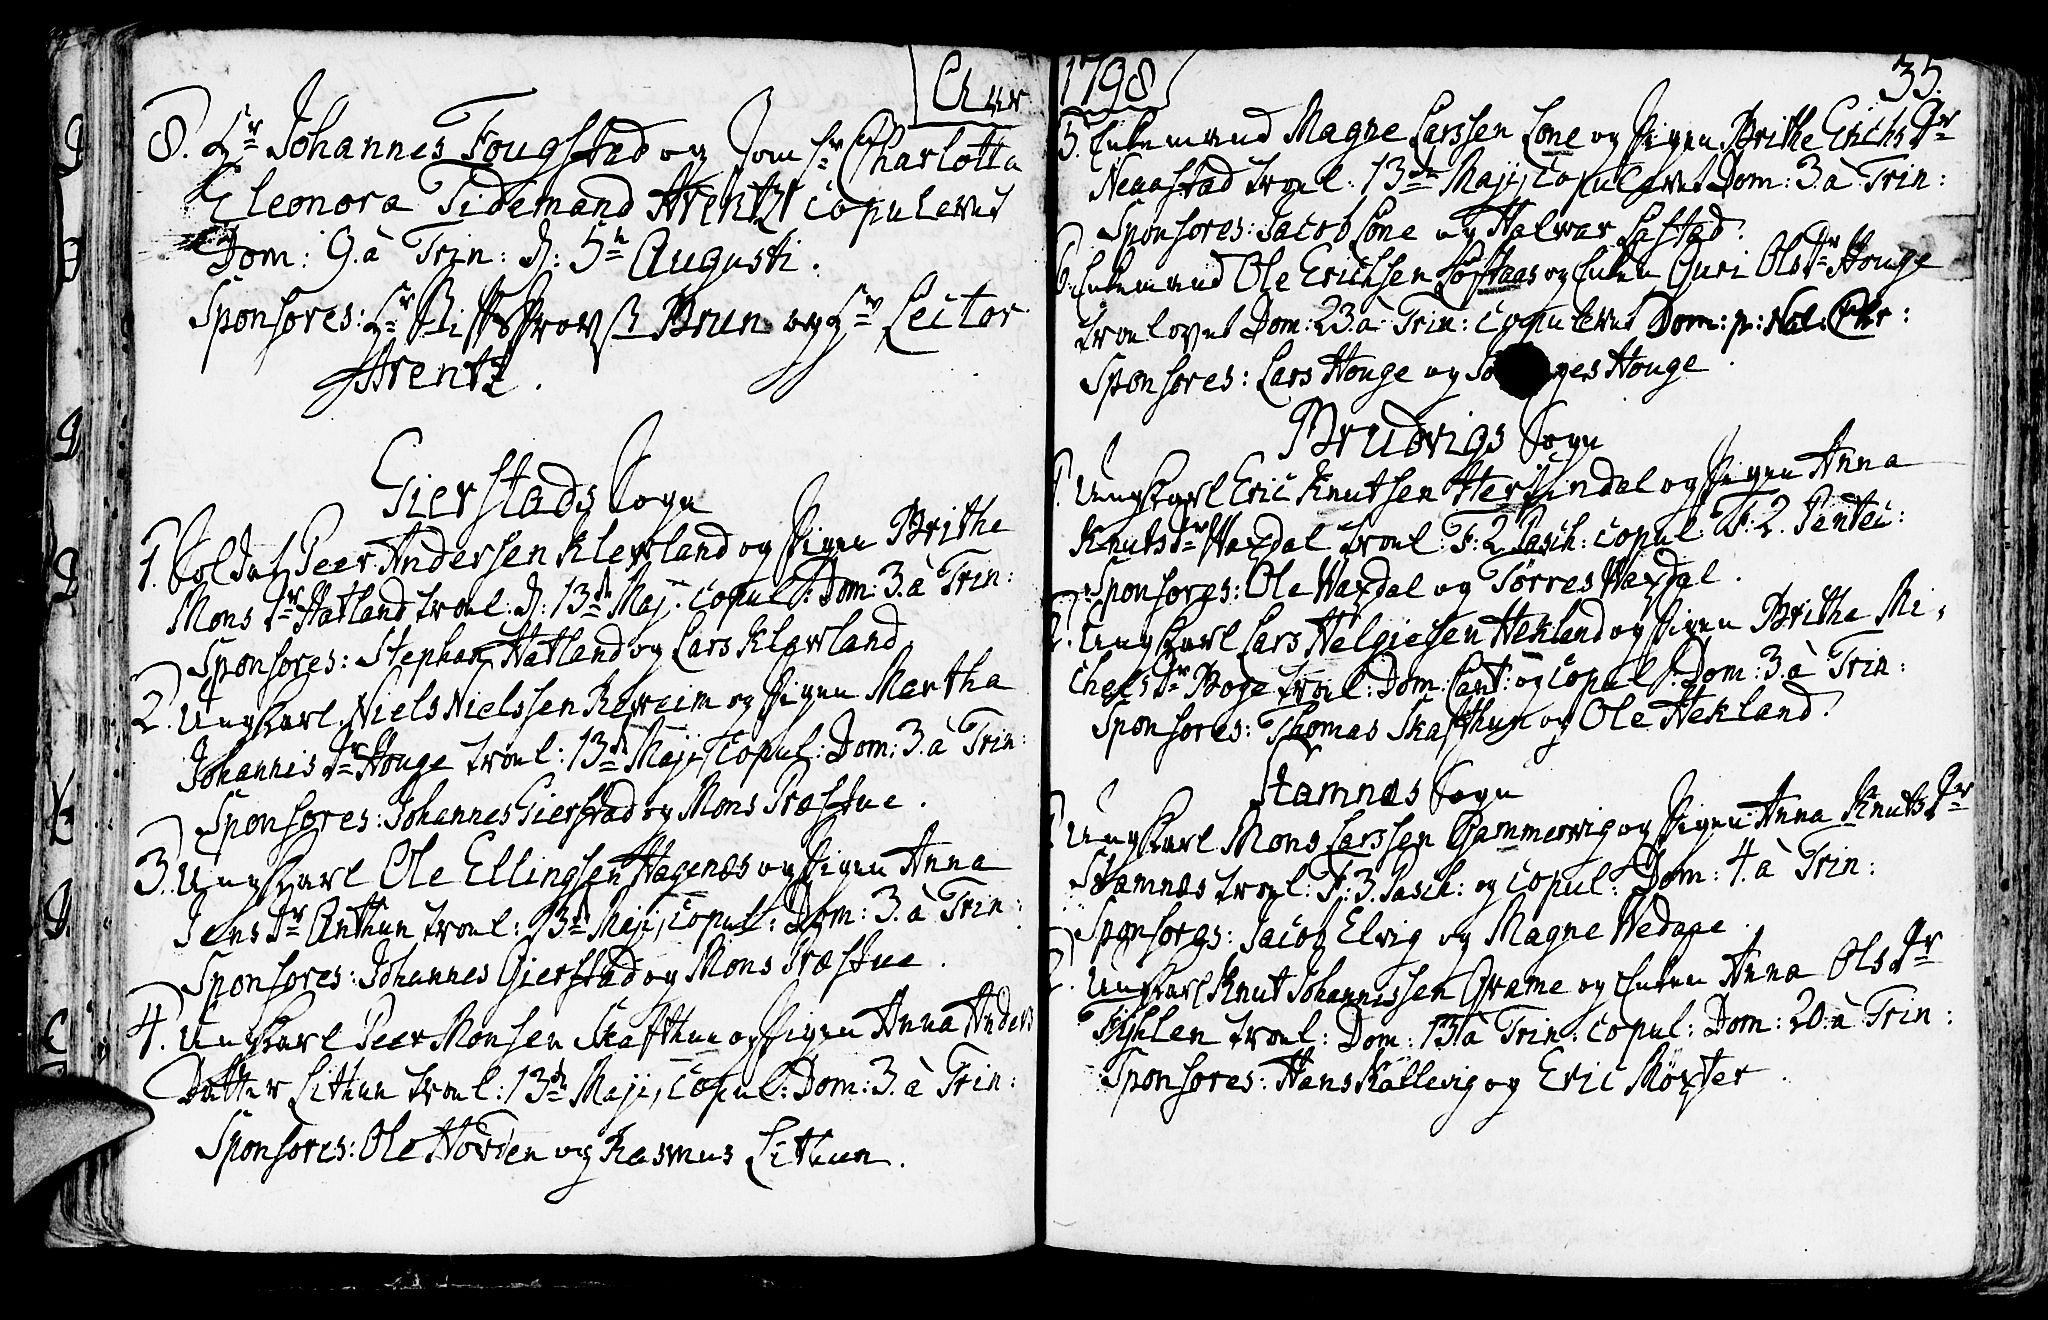 Chur
8. Hr Johannes Fougstad og Jomfr Charlotta
Eleonora Tidemand Arentz copuleret
Dom: 9. à Trin: d: 5te Augusti.
Sponsores: Hr StiftsProvst Brun og Hr Lector
Arentz.
Gierstads Sogn
1. Soldat Peer Andersen Klewland og Pigen Brithe
Mons Dr Hatland trol: d: 13de Maj. copul: Dom: 3. à Trin:
Sponsores: Stephan Hatland og Lars Klewland
2. Ungkarl Niels Nielssen Reweim og Pigen Martha
Johannis Dr Houge trol: 13de Maji, copul: Dom: 3. à Trin:
Sponsores: Johannes Gierstad og Mons Træstue.
3. Ungkarl Ole Ellingsen Hagenæs og Pigen Anna
Jens Dr Anthun trol: 13de Maji, copul: Dom: 3. à Trin:
Sponsores: Johannes Gierstad og Mons Træstue.
4. Ungkarl Peer Monsen Skafthun og Pigen Anna Anders
Datter Lithun trol: 13de Maji, copul: Dom: 3. à Trin:
Sponsores: Ole Horden og Rasmus Lithun.
1798
35.
5. Enkemand Magne Larssen Lone og Pigen Brithe Erichs Dr
Neaastad trol: 13de Maji, copuleret Dom: 3. à Trin:
Sponsores: Jacob Lone og Halvar Lastad.
6. Enkemand Ole Erichsen Løftaas og Enken Guri Ols Dr Houge
trolovet Dom: 23. à Trin: copuleret Dom: p: Nat: Chr:
Sponsores: Lars Houge og Houge.
Brudvigs Sogn
1. Ungkarl Eric Knutsen Herfindal og Pigen Anna
Knuts Dr Waxdal trol: F: 2 Pasch: copul: F: 2. Pentec:
Sponsores: Ole Waxdal og Tørres Waxdal.
2. Ungkarl Lars Helgiesen Hekland og Pigen Brithe Mi-
chels Dr Boge trol: Dom: Cant: og copul: Dom: 3. à Trin:
Sponsores: Thomas Skafthun og Ole Hekland.
Stamnæs Sogn
1. Ungkarl Mons Larssen Gammersvig og Pigen Anna Knuts Dr
Stamnæs trol: F: 3. Pasch: og copul: Dom: 4. à Trin:
Sponsores: Jacob Elvig og Magne Wedaae.
2. Ungkarl Knut Johannissen Qvame og Enken Anna Ols Dr
Fislen trol: Dom: 13. à Trin: copul: Dom: 20. à Trin:
Sponsores: Hans Kallevig og Eric Røxter.